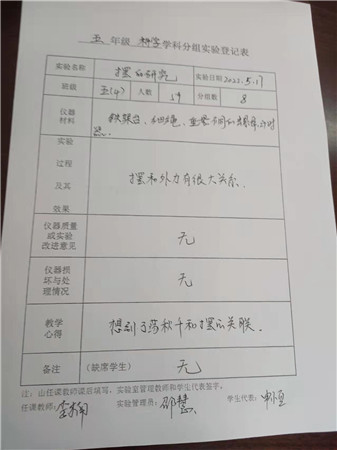 五 年级 科学 学科分组实验登记表
实验名称 摆的研究 实验日期 2022.5.17
班级 五(4) 人数 分组数 8
仪器材料 铁架台、细绳、重量不同的
实验过程及其效果 摆和外力有很大关系.
仪器质量或实验改进意见 无
仪器损坏与处理情况 无
教学心得 想到了荡秋千和摆的关联.
备注 (缺席学生) 无
注:由任课教师课后填写,实验室管理教师和学生代表签字。
任课教师: 实验管理员: 邵慧 学生代表: